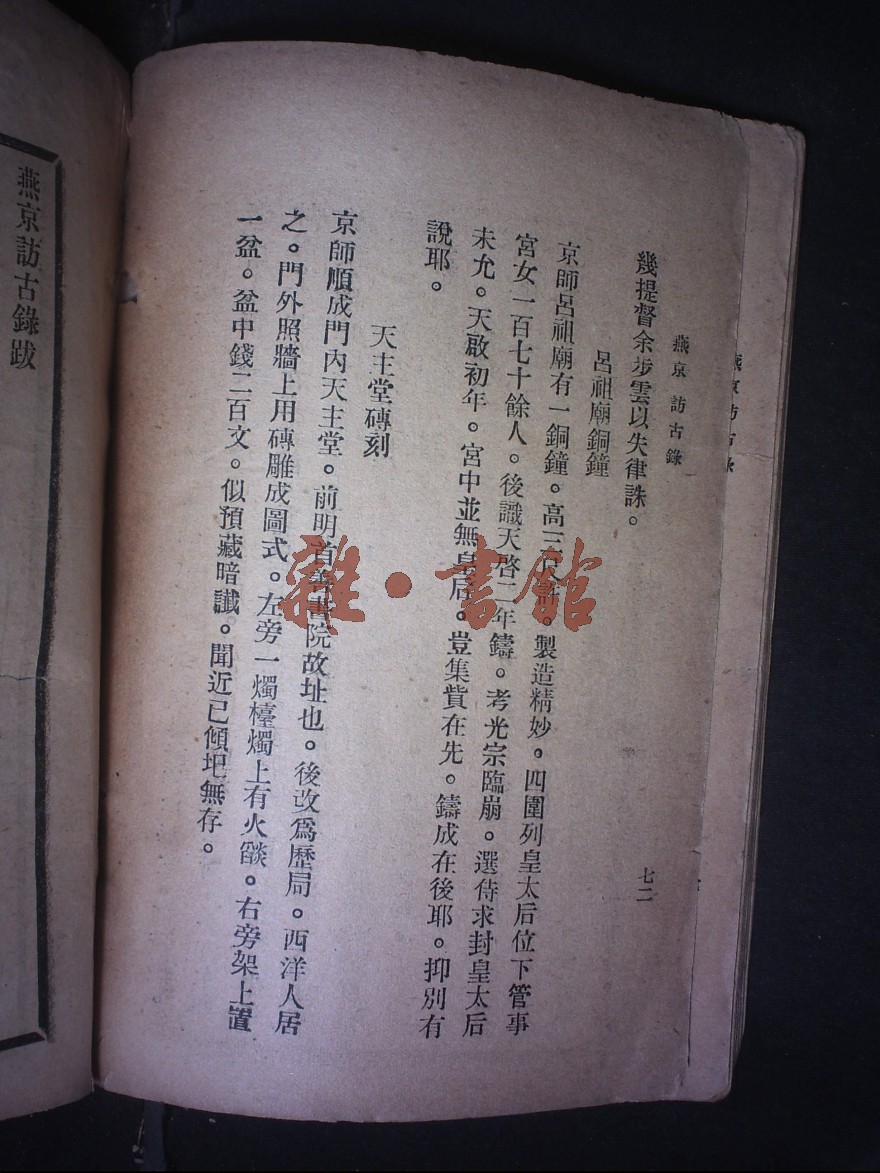 燕京訪古錄
七二
幾提督余步雲以失律誅。
呂祖廟銅鐘
京師呂祖廟有一銅鐘。高三尺許。製造精妙。四圍列皇太后位下管事
宮女一百七十餘人。後識天啓二年鑄。考光宗臨崩。選侍求封皇太后
未允。天啟初年。宮中並無皇后。豈集貲在先。鑄成在後耶。抑別有
說耶。
天主堂磚刻
京師順成門內天主堂。前明首善書院故址也。後改爲歷局。西洋人居
之。門外照牆上用磚雕成圖式。左旁一燭檯燭上有火燄。右旁架上置
一盆。盆中錢二百文。似預藏暗讖。聞近已傾圯無存。
燕京訪古錄跋
雜·書館